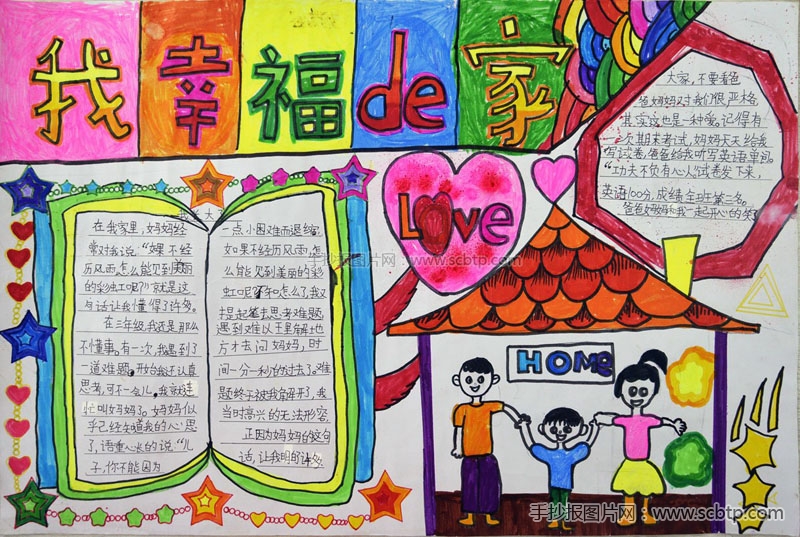 我幸福de家
Love
HOME
在我家里，妈妈经
常对我说："如果不经
历风雨，怎么能见到美丽
的彩虹呢？"就是这
句话让我懂得了许多。
在三年级，我还是那么
不懂事。有一次，我遇到了
一道难题，开始我还认真
思考，可不一会儿，我就连
忙叫妈妈了。妈妈似
乎已经知道我的心思
了，语重心长的说："儿
子，你不能因为
一点小困难而退缩。
如果不经历风雨，怎
么能见到美丽的彩
虹呢？不知怎么了，我又
提起笔去思考难题
遇到难以理解地
方才去问妈妈，时
间一分一秒的过去了。难
题终于被我解开了，我
当时高兴的无法形容，
正因为妈妈的这句
话，让我明白许多
大家，不要看爸
爸妈妈对我们很严格，
其实这也是一种爱。记得有
一次期末考试，妈妈天天给我
写试卷，爸爸给我听写英语单词。
"功夫不负有心人"试卷发下来，
英语100分，成绩全班第三名。
爸爸妈妈和我一起开心的笑了
手抄报图片网：www.scbtp.com
手抄报图片网：www.scbtp.com